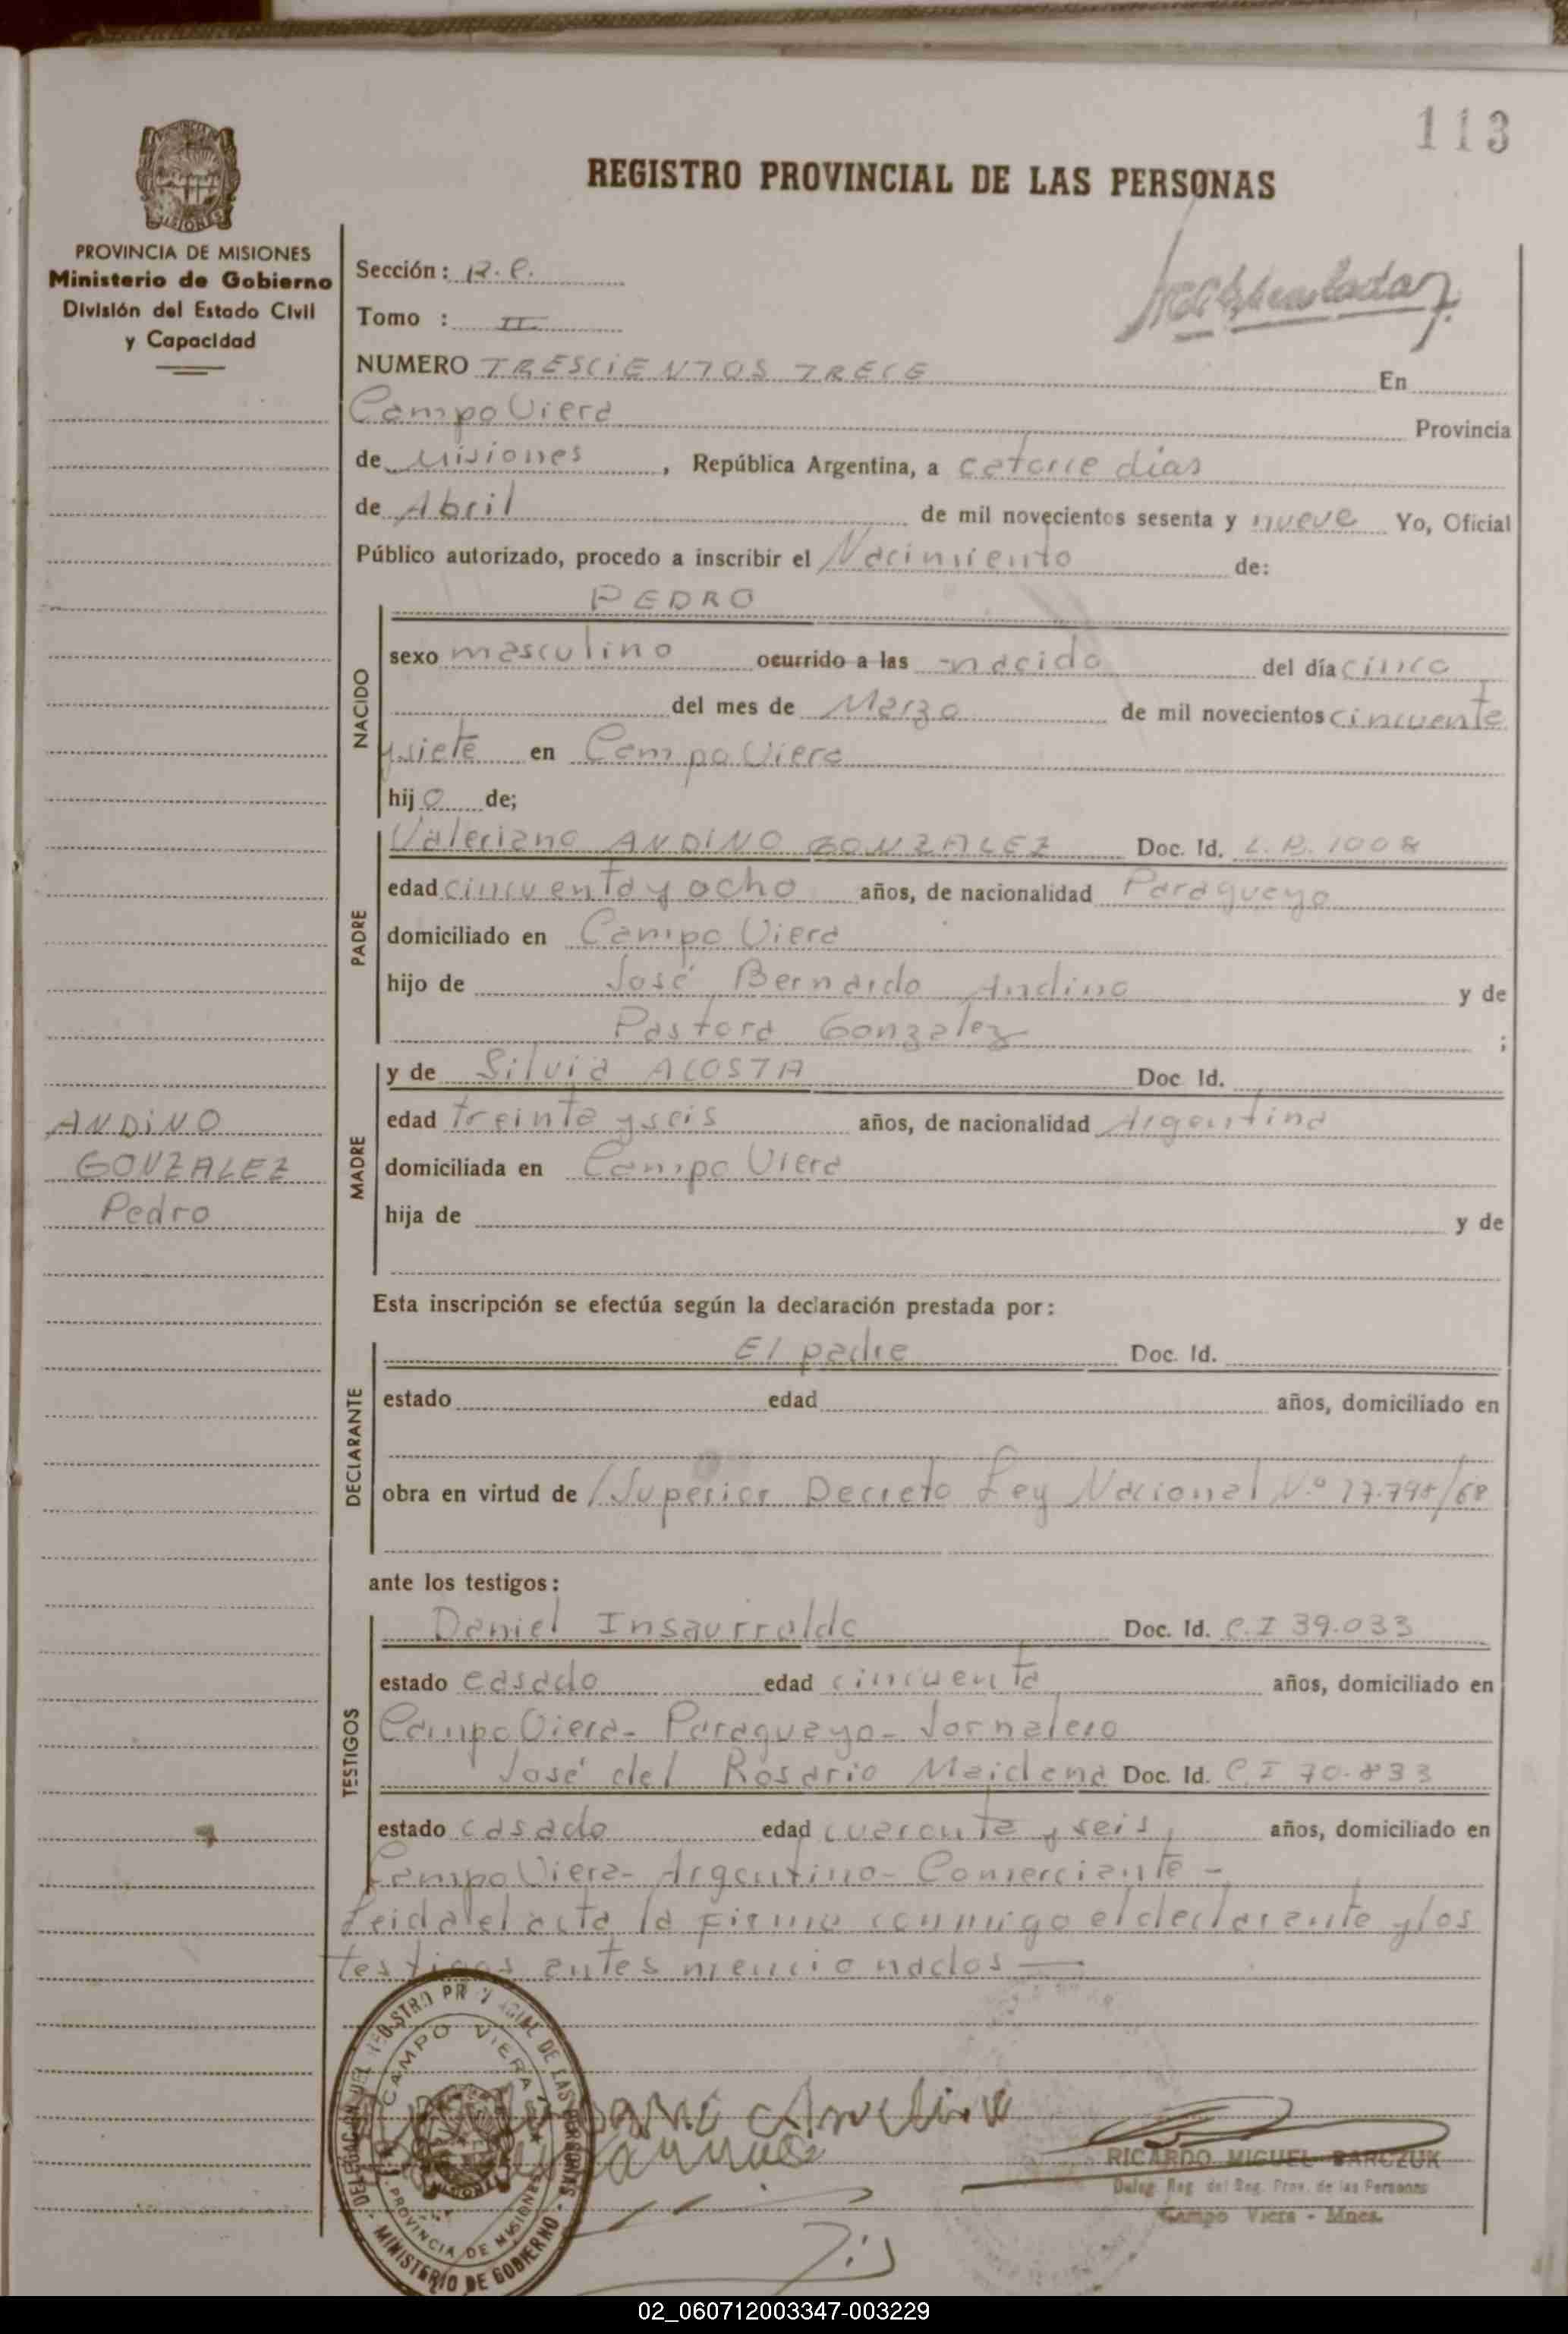 113
REGISTRO PROVINCIAL DE LAS PERSONAS
MISIONES
PROVINCIA DE MISIONES
Ministerio de Gobierno
División del Estado Civil
y Capacidad
Sección: R. P.
Tomo : II
NUMERO TRESCIENTOS TRECE En
Campo Viera Provincia
de Misiones, República Argentina, a catorce días
de Abril de mil novecientos sesenta y nueve Yo, Oficial
Público autorizado, procedo a inscribir el Nacimiento de:
NACIDO
PEDRO
sexo masculino ocurrido a las nacido del día cinco
del mes de Marzo de mil novecientos cincuenta
y siete en Campo Viera
hijo de;
PADRE
Valeriano ANDINO GONZALEZ Doc. Id. L.B. 1008
edad cincuenta y ocho años, de nacionalidad Paraguayo
domiciliado en Campo Viera
hijo de José Bernardo Andino y de
Pastora Gonzalez ;
MADRE
y de Silvia ACOSTA Doc. Id.
edad treinta y seis años, de nacionalidad Argentina
domiciliada en Campo Viera
hija de y de
ANDINO
GONZALEZ
Pedro
Esta inscripción se efectúa según la declaración prestada por:
DECLARANTE
El padre Doc. Id.
estado edad años, domiciliado en
obra en virtud de /Superior Decreto Ley Nacional N.º 17.798/68
ante los testigos:
TESTIGOS
Daniel Insaurralde Doc. Id. C.I 39.033
estado casado edad cincuenta años, domiciliado en
Campo Viera- Paraguayo- Jornalero
José del Rosario Maidana Doc. Id. C.I 70.833
estado casado edad cuarenta y seis, años, domiciliado en
Campo Viera- Argentino- Comerciante -
Leida el acta, la firma conmigo el declarante y los
testigos antes mencionados
DELEGACION DEL REGISTRO PROVINCIAL DE LAS PERSONAS
CAMPO VIERA
PROVINCIA DE MISIONES
MINISTERIO DE GOBIERNO
RICARDO MIGUEL BARCZUK
Deleg. Reg. del Reg. Prov. de las Personas
Campo Viera - Mnes.
02_060712003347-003229